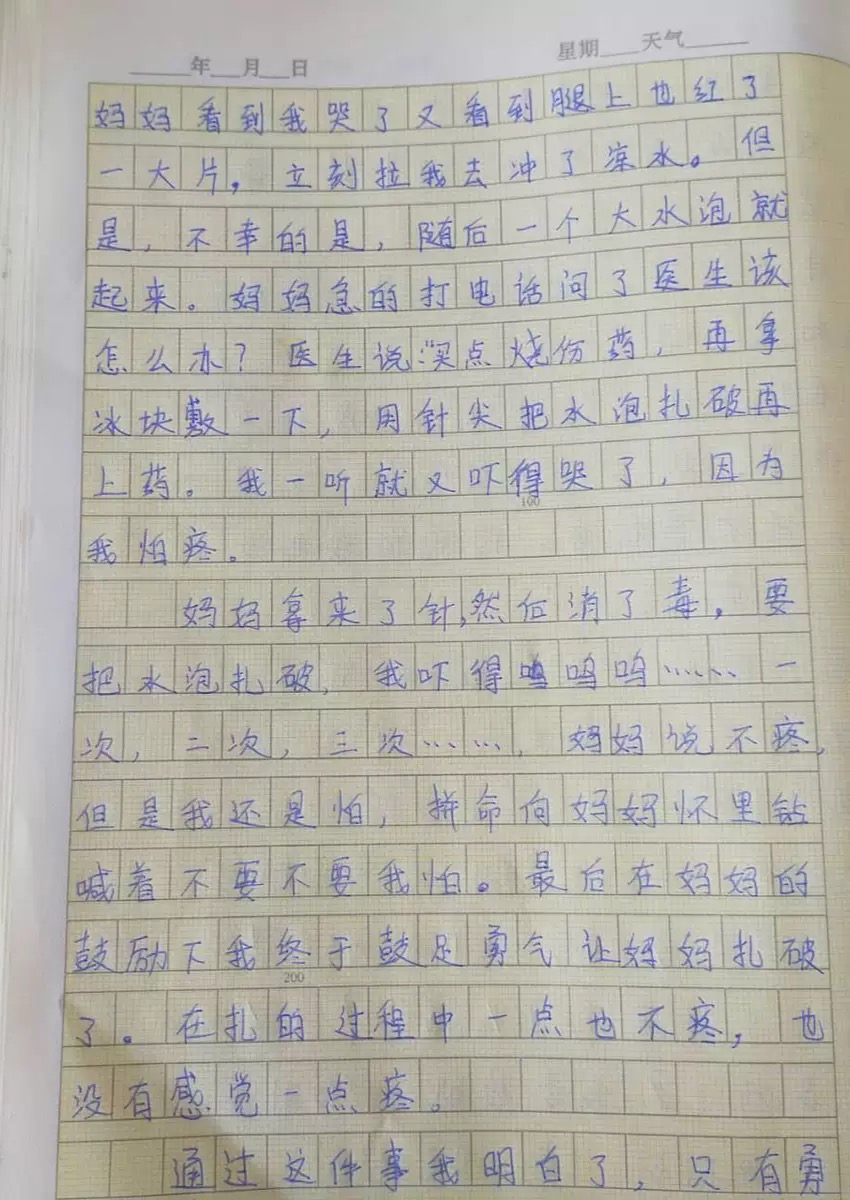 年 月 日 星期 天气
妈妈看到我哭了又看到腿上也红了
一大片，立刻拉我去冲了凉水。但
是，不幸的是，随后一个大水泡就
起来。妈妈急的打电话问了医生该
怎么办？医生说：买点烧伤药，再拿
冰块敷一下，用针尖把水泡扎破再
上药。我一听就又吓得哭了，因为
100
我怕疼。
妈妈拿来了针，然后消了毒，要
把水泡扎破，我吓得呜呜呜……一
次，二次，三次……，妈妈说不疼，
但是我还是怕，拼命向妈妈怀里钻
喊着不要不要我怕。最后在妈妈的
鼓励下我终于鼓足勇气让妈妈扎破
200
了。在扎的过程中一点也不疼，也
没有感觉一点疼。
通过这件事我明白了，只有勇